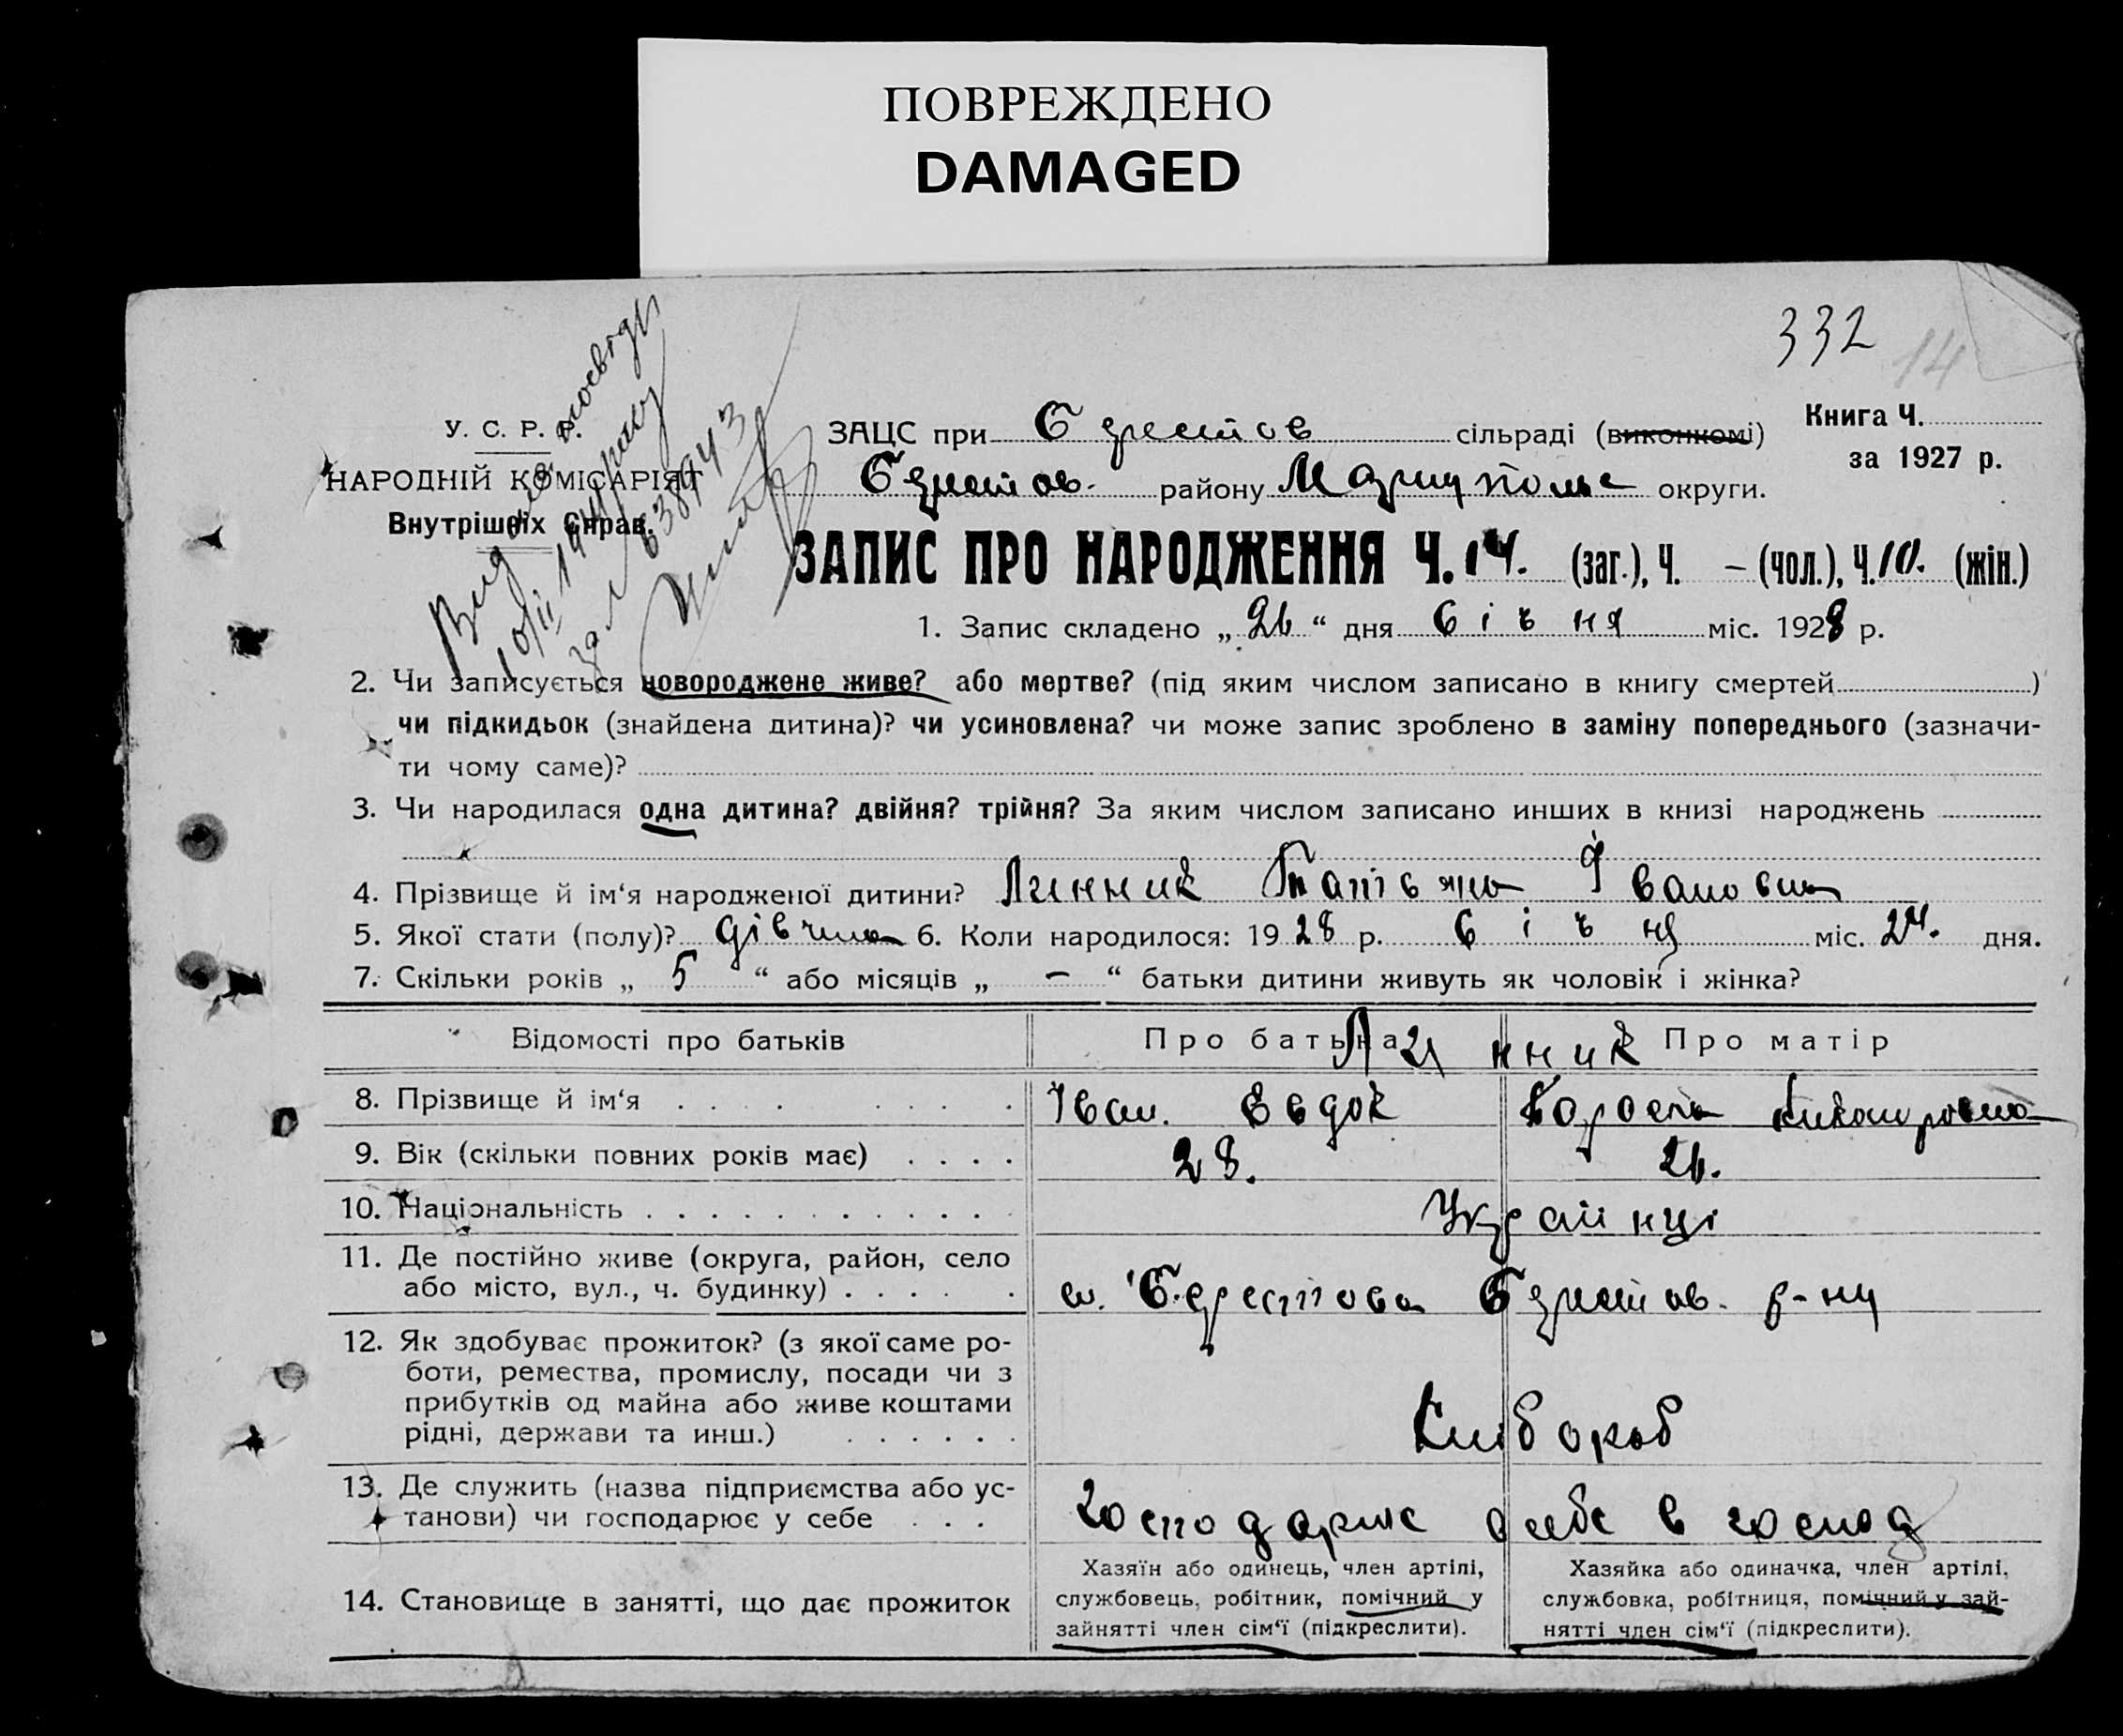 ПОВРЕЖДЕНО
DAMAGED
332
14
У. С. Р. Р.
НАРОДНІЙ КОМІСАРІЯТ
Внутрішніх Справ.
ЗАЦС при сільраді (виконкомі)
Книга Ч.
за 1927 р.
району Маріупольс округи.
ЗАПИС ПРО НАРОДЖЕННЯ Ч. 14. (заг.), Ч. – (чол.), Ч. 10. (жін.)
1. Запис складено „ 26 “ дня січня міс. 1928 р.
2. Чи записується новороджене живе? або мертве? (під яким числом записано в книгу смертей )
чи підкидьок (знайдена дитина)? чи усиновлена? чи може запис зроблено в заміну попереднього (зазначи-
ти чому саме)?
3. Чи народилася одна дитина? двійня? трійня? За яким числом записано инших в книзі народжень
4. Прізвище й ім‘я народженої дитини? Линник Івановна
5. Якої стати (полу)? дівчина 6. Коли народилося: 1928 р. січня міс. 24. дня.
7. Скільки років „ 5 “ або місяців „ – “ батьки дитини живуть як чоловік і жінка?
Відомості про батьків Про батька Про матір
Линник
8. Прізвище й ім‘я . . . . . . . . Іван. Евдок
9. Вік (скільки повних років має) . . . . 28. 26.
10. Національність . . . . . . . . . . . Українці
11. Де постійно живе (округа, район, село
або місто, вул., ч. будинку) . . . . . р-ну
12. Як здобуває прожиток? (з якої саме ро-
боти, ремества, промислу, посади чи з
прибутків од майна або живе коштами
рідні, держави та инш.) . . . . . . Хлібороб
13. Де служить (назва підприємства або ус-
танови) чи господарює у себе . . . господарює в господ
14. Становище в занятті, що дає прожиток
Хазяїн або одинець, член артілі,
службовець, робітник, помічний у
зайнятті член сім‘ї (підкреслити).
Хазяйка або одиначка, член артілі,
службовка, робітниця, помічний у зай-
нятті член сім‘ї (підкреслити).